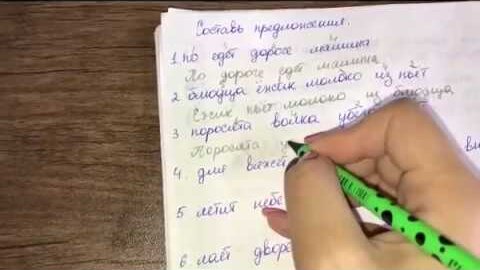 Составь предложения.
1. по едет дороге машина
По дороге едет машина
2 блюдца ёжик молоко из пьёт
Ёжик пьет молоко из блюдца
3 поросята волка
Поросята
4. для вяжет
5 летит
6. лает